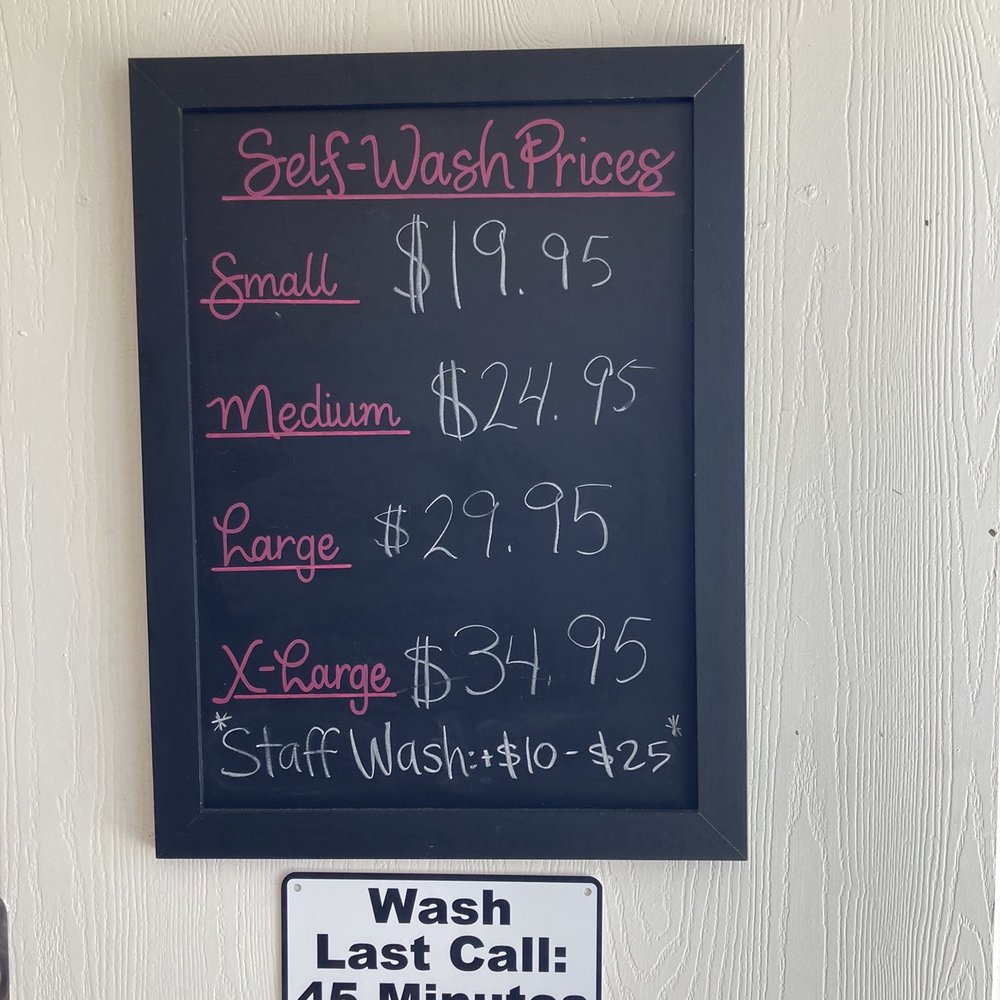 Self-Wash Prices
Small $19.95
Medium $24.95
Large $29.95
X-Large $34.95
*Staff Wash:+$10-$25*
Wash
Last Call:
45 Minutes